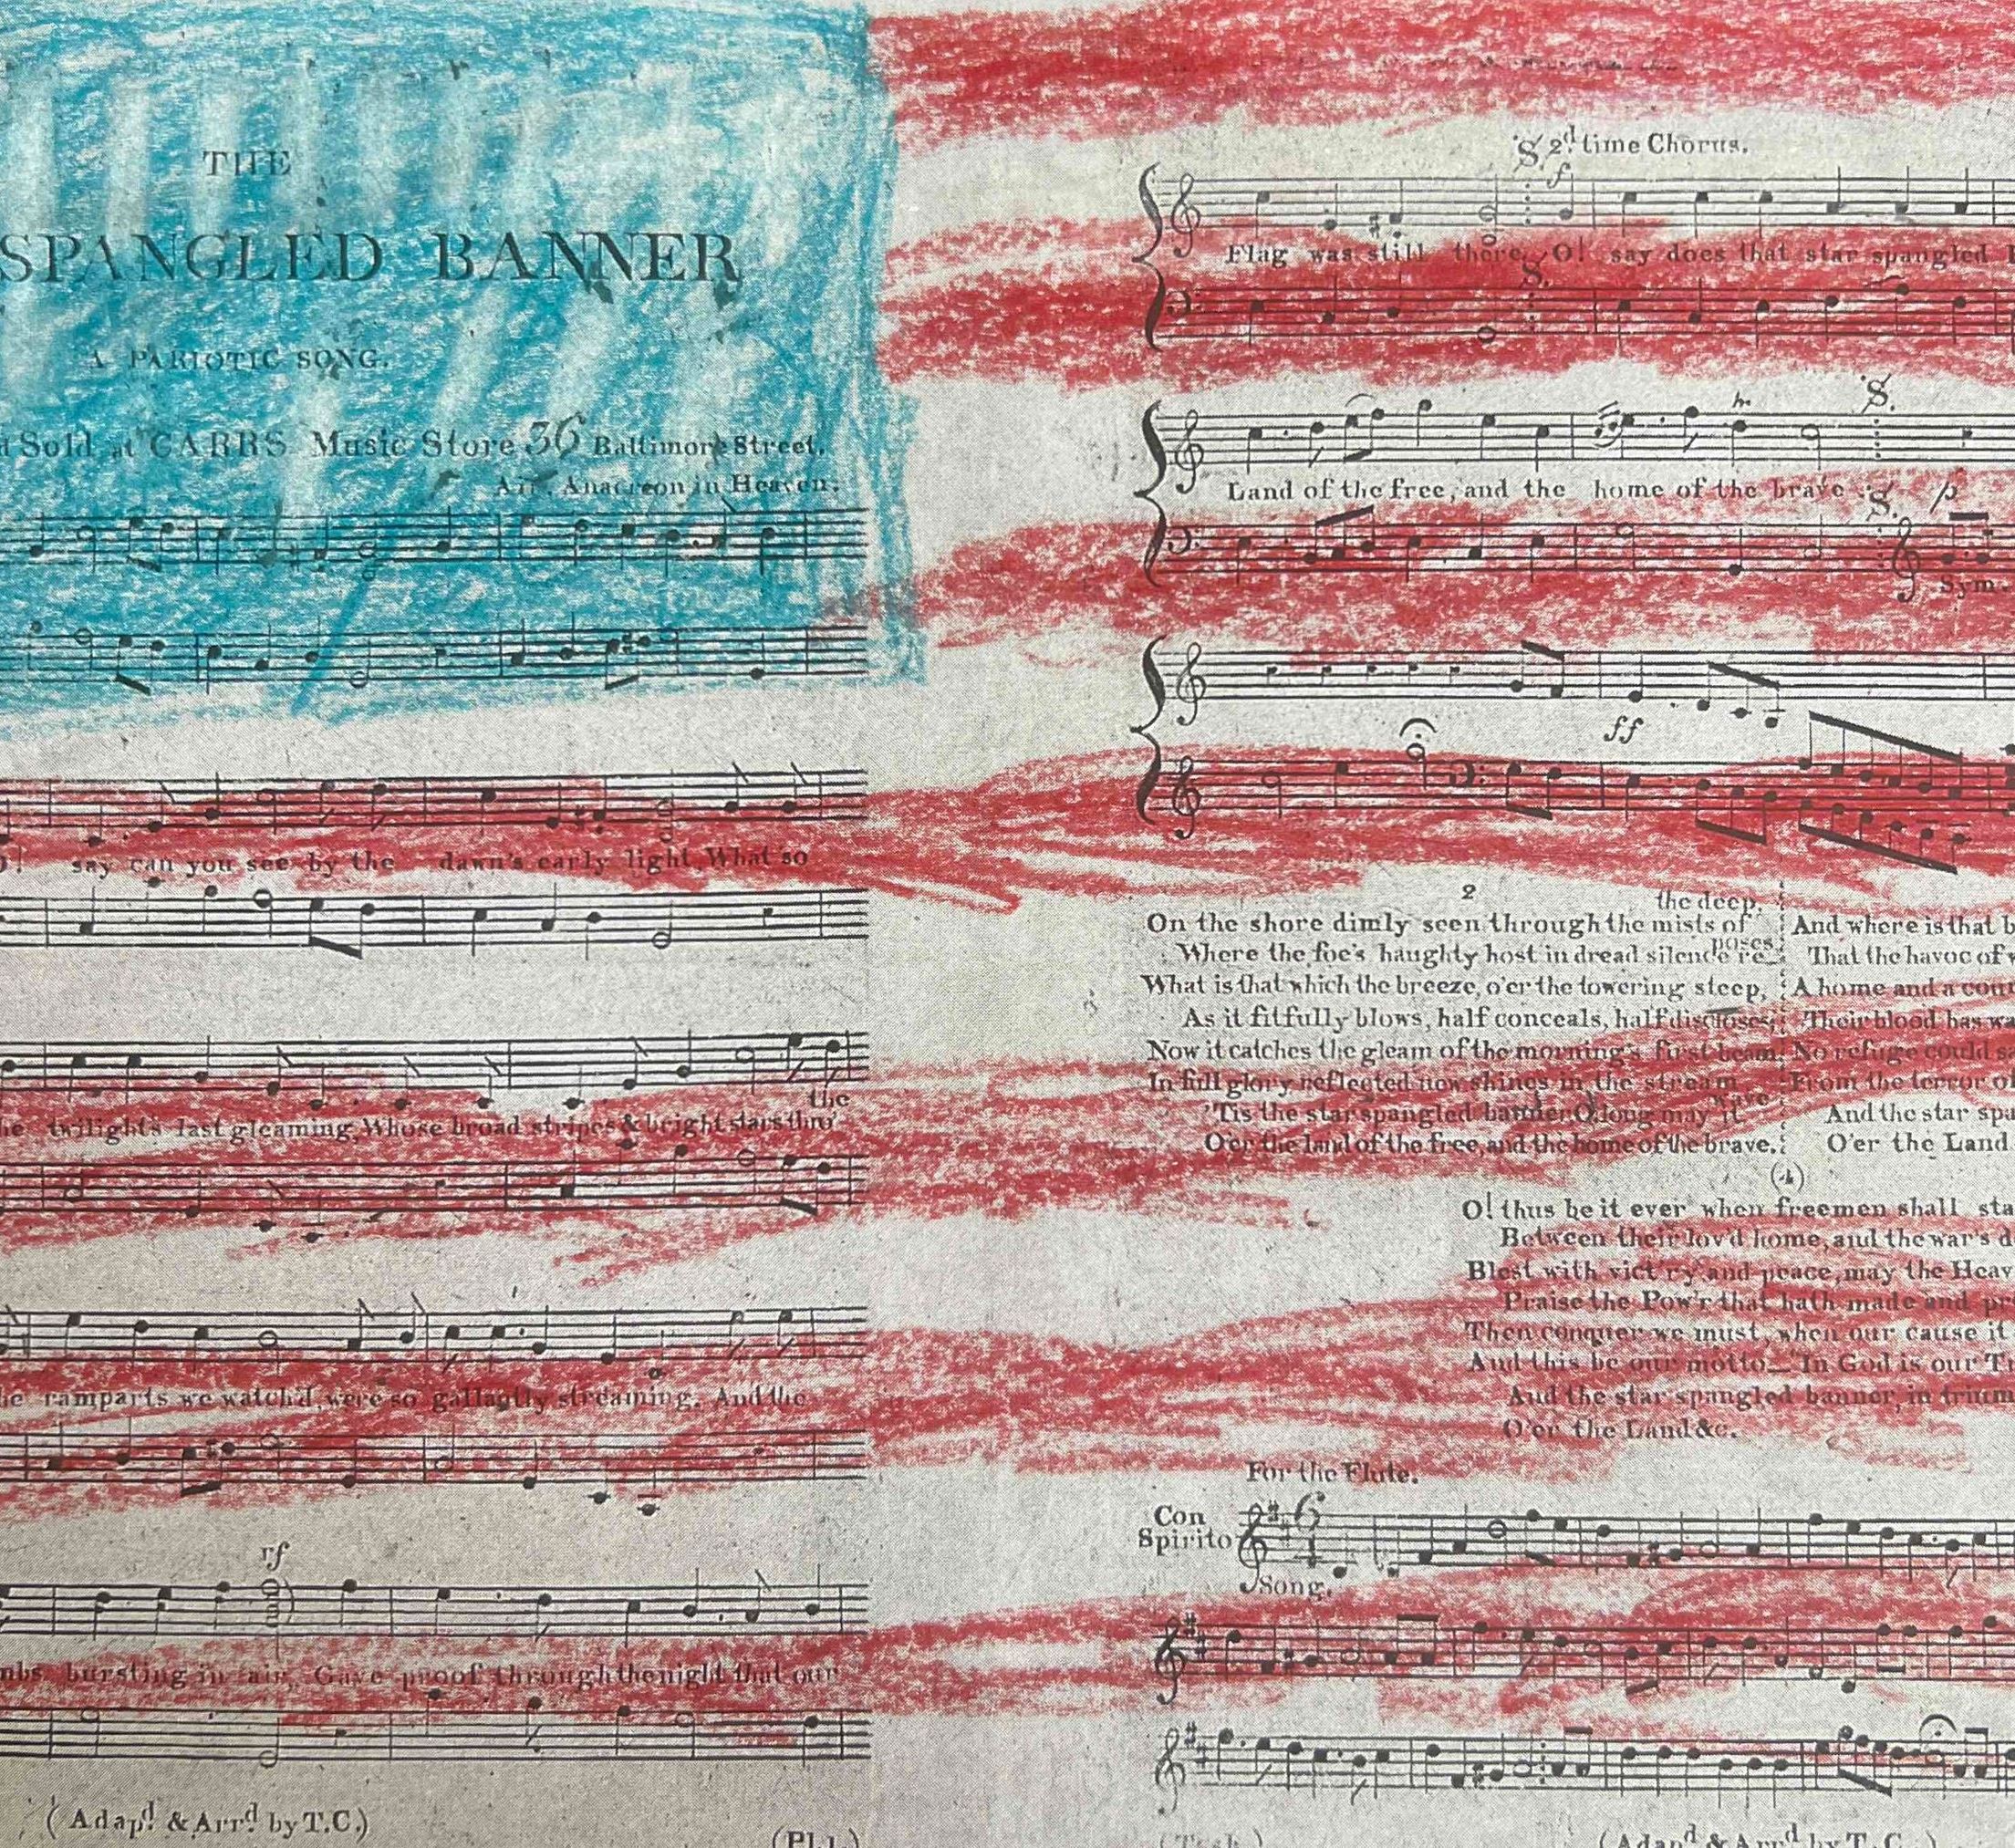 THE
SPANGLED BANNER
A PARIOTIC SONG.
Sold at CARRS Music Store 36 Baltimore Street.
Air. Anacreon in Heaven.
O! say can you see by the dawn's early light, What so
the
twilight's last gleaming, Whose broad stripes & bright stars thro'
ramparts we watch'd, were so gallantly streaming. And the
rf
bursting in air, Gave proof through the night that our
(Adapd. & Arrd. by T.C.)
(Pl 1)
2d time Chorus.
f
Flag was still there, O! say does that star spangled
Land of the free, and the home of the brave
p
Sym
ff
2
the deep,
On the shore dimly seen through the mists of
poses,
Where the foe's haughty host in dread silence re-
What is that which the breeze, o'er the towering steep,
As it fitfully blows, half conceals, half discloses;
Now it catches the gleam of the morning's first beam,
In full glory reflected now shines in the stream
wave
'Tis the star spangled banner O long may it
O'er the land of the free, and the home of the brave.
And where is that
That the havoc of
A home and a
Their blood has
No refuge could
From the terror
And the star
O'er the Land
(4)
O! thus be it ever when freemen shall
Between their lov'd home, and the war's
Blest with vict'ry and peace, may the
Praise the Pow'r that hath made and
Then conquer we must, when our cause it
And this be our motto—"In God is our
And the star spangled banner, in
O'er the Land &c.
For the Flute.
Con
Spirito
Song.
(Adapd & Arrd by T.C.)